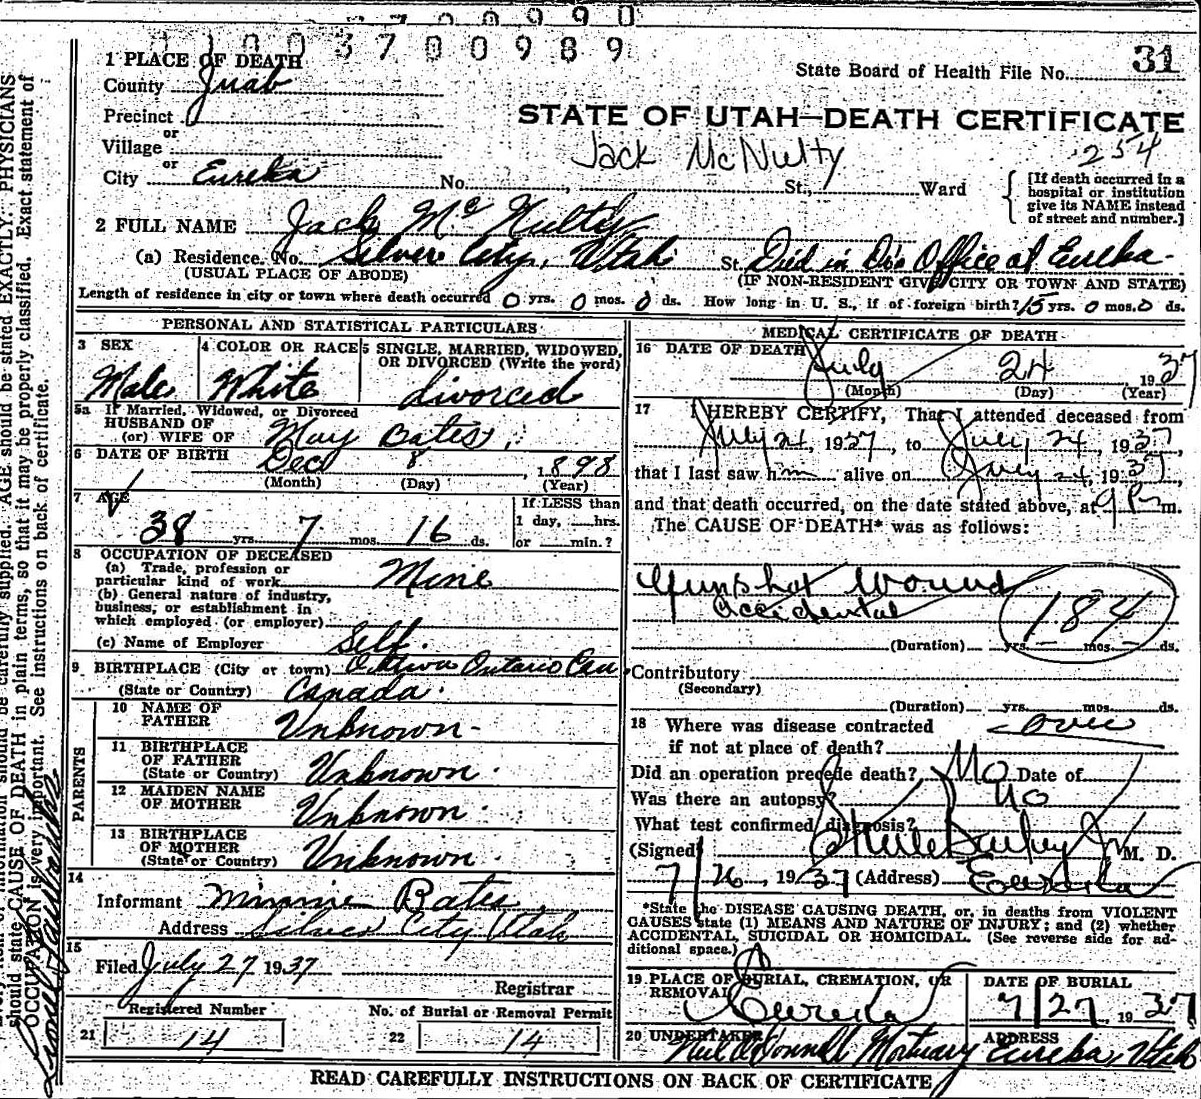 3700990
1003700989
1 PLACE OF DEATH
County Juab
State Board of Health File No. 31
Precinct
or
Village
or
City Eureka No. , St., Ward
STATE OF UTAH—DEATH CERTIFICATE
Jack McNulty
254
[If death occurred in a
hospital or institution
give its NAME instead
of street and number.]
2 FULL NAME Jack McNulty
(a) Residence. No. Silver City, Utah St. Died in Drs Office at Eureka
(USUAL PLACE OF ABODE) (IF NON-RESIDENT GIVE CITY OR TOWN AND STATE)
Length of residence in city or town where death occurred 0 yrs. 0 mos. 0 ds. How long in U. S., if of foreign birth? 15 yrs. 0 mos. 0 ds.
PERSONAL AND STATISTICAL PARTICULARS
3 SEX
Male
4 COLOR OR RACE
White
5 SINGLE, MARRIED, WIDOWED,
OR DIVORCED (Write the word)
divorced
5a If Married, Widowed, or Divorced
HUSBAND OF
(or) WIFE OF May Bates
6 DATE OF BIRTH Dec 8, 1898
(Month) (Day) (Year)
7 AGE
38 yrs. 7 mos. 16 ds.
If LESS than
1 day, hrs.
or min.?
8 OCCUPATION OF DECEASED
(a) Trade, profession or
particular kind of work Mine
(b) General nature of industry,
business, or establishment in
which employed (or employer)
(c) Name of Employer Self
9 BIRTHPLACE (City or town) Ottawa Ontario Can.
(State or Country) Canada.
PARENTS
10 NAME OF
FATHER Unknown
11 BIRTHPLACE
OF FATHER
(State or Country) Unknown
12 MAIDEN NAME
OF MOTHER Unknown
13 BIRTHPLACE
OF MOTHER
(State or Country) Unknown
14
Informant Minnie Bates
Address Silver City Utah
15
Filed July 27 1937
Registrar
Registered Number
21 14
No. of Burial or Removal Permit
22 14
MEDICAL CERTIFICATE OF DEATH
16 DATE OF DEATH
July 24 1937
(Month) (Day) (Year)
17 I HEREBY CERTIFY, That I attended deceased from
July 24, 1937, to July 24, 1937,
that I last saw him alive on July 24, 1937,
and that death occurred, on the date stated above, at 9 P m.
The CAUSE OF DEATH* was as follows:
Gunshot Wound
Accidental
184
(Duration) yrs. mos. ds.
Contributory
(Secondary)
(Duration) yrs. mos. ds.
18 Where was disease contracted
if not at place of death?
over
Did an operation precede death? No Date of
Was there an autopsy? No
What test confirmed diagnosis?
(Signed) Steele Bailey Jr M. D.
7/26, 1937 (Address) Eureka
*State the DISEASE CAUSING DEATH, or, in deaths from VIOLENT
CAUSES state (1) MEANS AND NATURE OF INJURY; and (2) whether
ACCIDENTAL, SUICIDAL OR HOMICIDAL. (See reverse side for ad-
ditional space.)
19 PLACE OF BURIAL, CREMATION, OR
REMOVAL
Eureka
DATE OF BURIAL
7/27, 1937
20 UNDERTAKER
ADDRESS
Mortuary Eureka, Utah
READ CAREFULLY INSTRUCTIONS ON BACK OF CERTIFICATE
carefully supplied. AGE should be stated EXACTLY. PHYSICIANS
should state CAUSE OF DEATH in plain terms, so that it may be properly classified. Exact statement of
OCCUPATION is very important. See instructions on back of certificate.